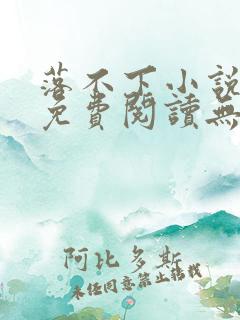 落不下小說
免費閱讀無
阿比多斯
未經同意禁止轉載